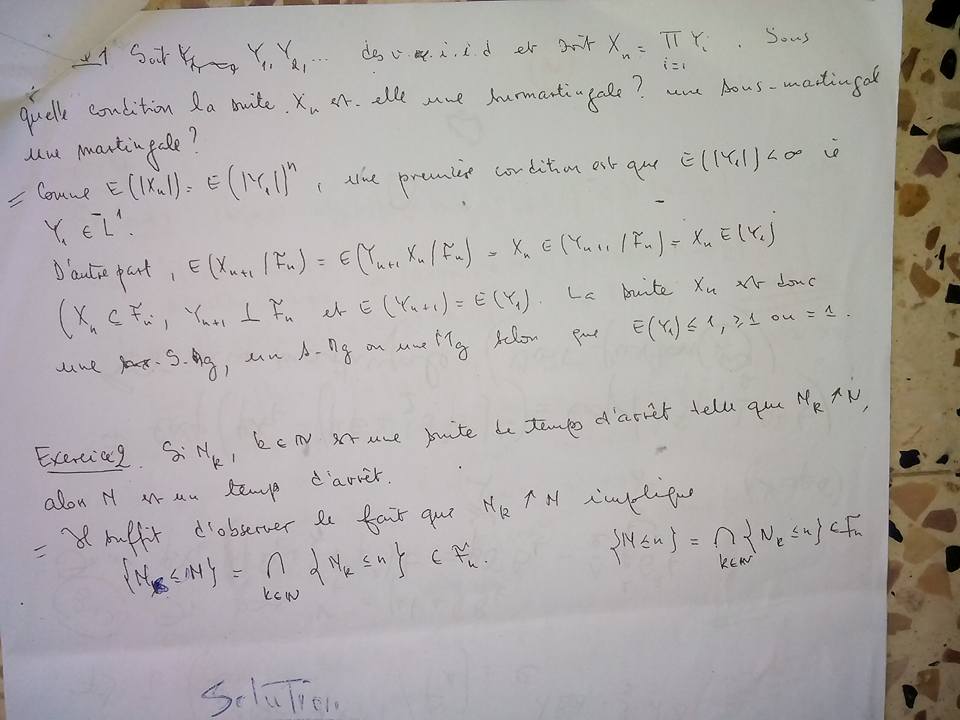 1 Soit Y₁, Y₂, ... des v. i.i.d et soit Xₙ = ∏ Yᵢ . Sous
i=1
quelle condition la suite Xₙ est-elle une surmartingale ? une sous-martingal
une martingale ?
= Comme E(|Xₙ|) = E(|Y₁|)ⁿ, une première condition est que E(|Y₁|) < ∞ ie
Y₁ ∈ L¹.
D'autre part, E(Xₙ₊₁/Fₙ) = E(Yₙ₊₁ Xₙ/Fₙ) = Xₙ E(Yₙ₊₁/Fₙ) = Xₙ E(Y₁)
(Xₙ ⊂ Fₙ, Yₙ₊₁ ⊥ Fₙ et E(Yₙ₊₁) = E(Y₁). La suite Xₙ est donc
une S-Mg, un s-Mg ou une Mg selon que E(Y₁) ≤ 1, ≥ 1 ou = 1.
Exercice 2. Si Nₖ, k ∈ ℕ est une suite de temps d'arrêt telle que Nₖ ↑ N,
alors N est un temps d'arrêt.
= Il suffit d'observer le fait que Nₖ ↑ N implique
{N ≤ N} = ∩ {Nₖ ≤ n} ∈ Fₙ. {N ≤ n} = ∩ {Nₖ ≤ n} ∈ Fₙ
k∈ℕ k∈ℕ
Solution